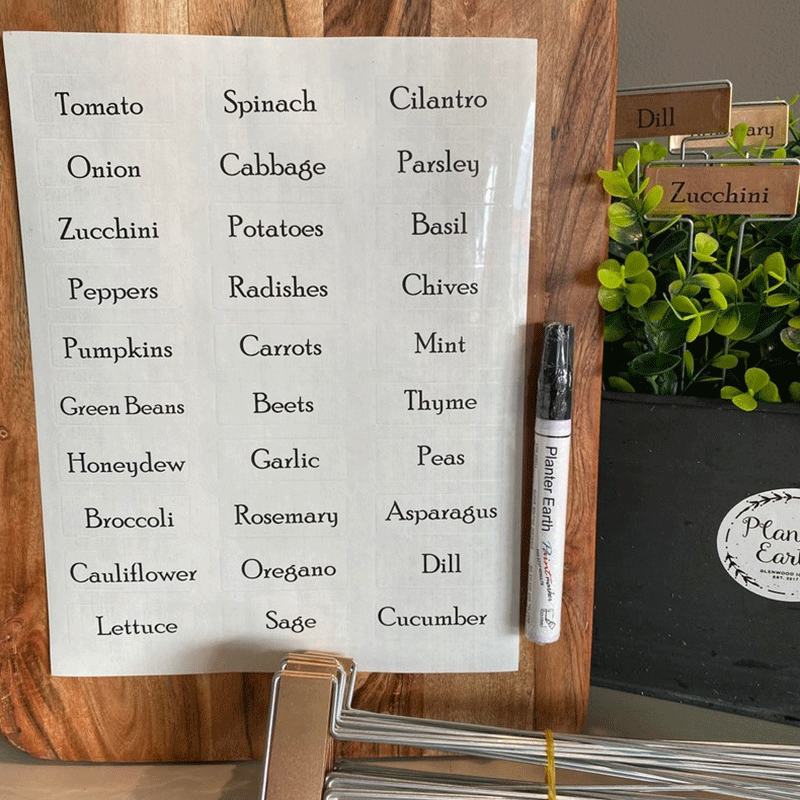 Tomato
Spinach
Cilantro
Onion
Cabbage
Parsley
Zucchini
Potatoes
Basil
Peppers
Radishes
Chives
Pumpkins
Carrots
Mint
Green Beans
Beets
Thyme
Honeydew
Garlic
Peas
Broccoli
Rosemary
Asparagus
Cauliflower
Oregano
Dill
Lettuce
Sage
Cucumber
Dill
Zucchini
Planter Earth
Paint marker